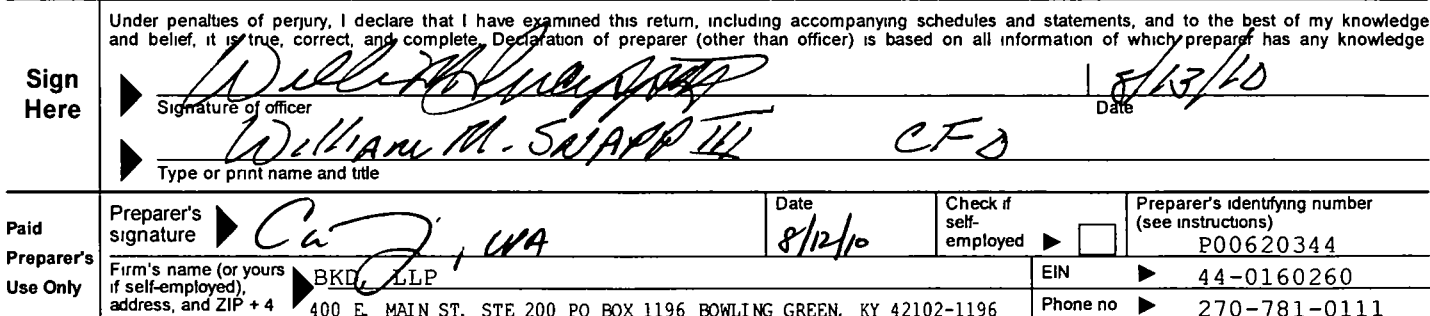 Under penalties of perjury, I declare that I have examined this return, including accompanying schedules and statements, and to the best of my knowledge
and belief, it is true, correct, and complete. Declaration of preparer (other than officer) is based on all information of which preparer has any knowledge
Sign
Here
8/13/10
Signature of officer
Date
William M. SNAPP III CFO
Type or print name and title
Paid
Preparer's
Use Only
Preparer's
signature
, CPA
Date
8/12/10
Check if
self-
employed
Preparer's identifying number
(see instructions)
P00620344
Firm's name (or yours
if self-employed),
address, and ZIP + 4
BKD, LLP
400 E. MAIN ST. STE 200 PO BOX 1196 BOWLING GREEN, KY 42102-1196
EIN
44-0160260
Phone no
270-781-0111